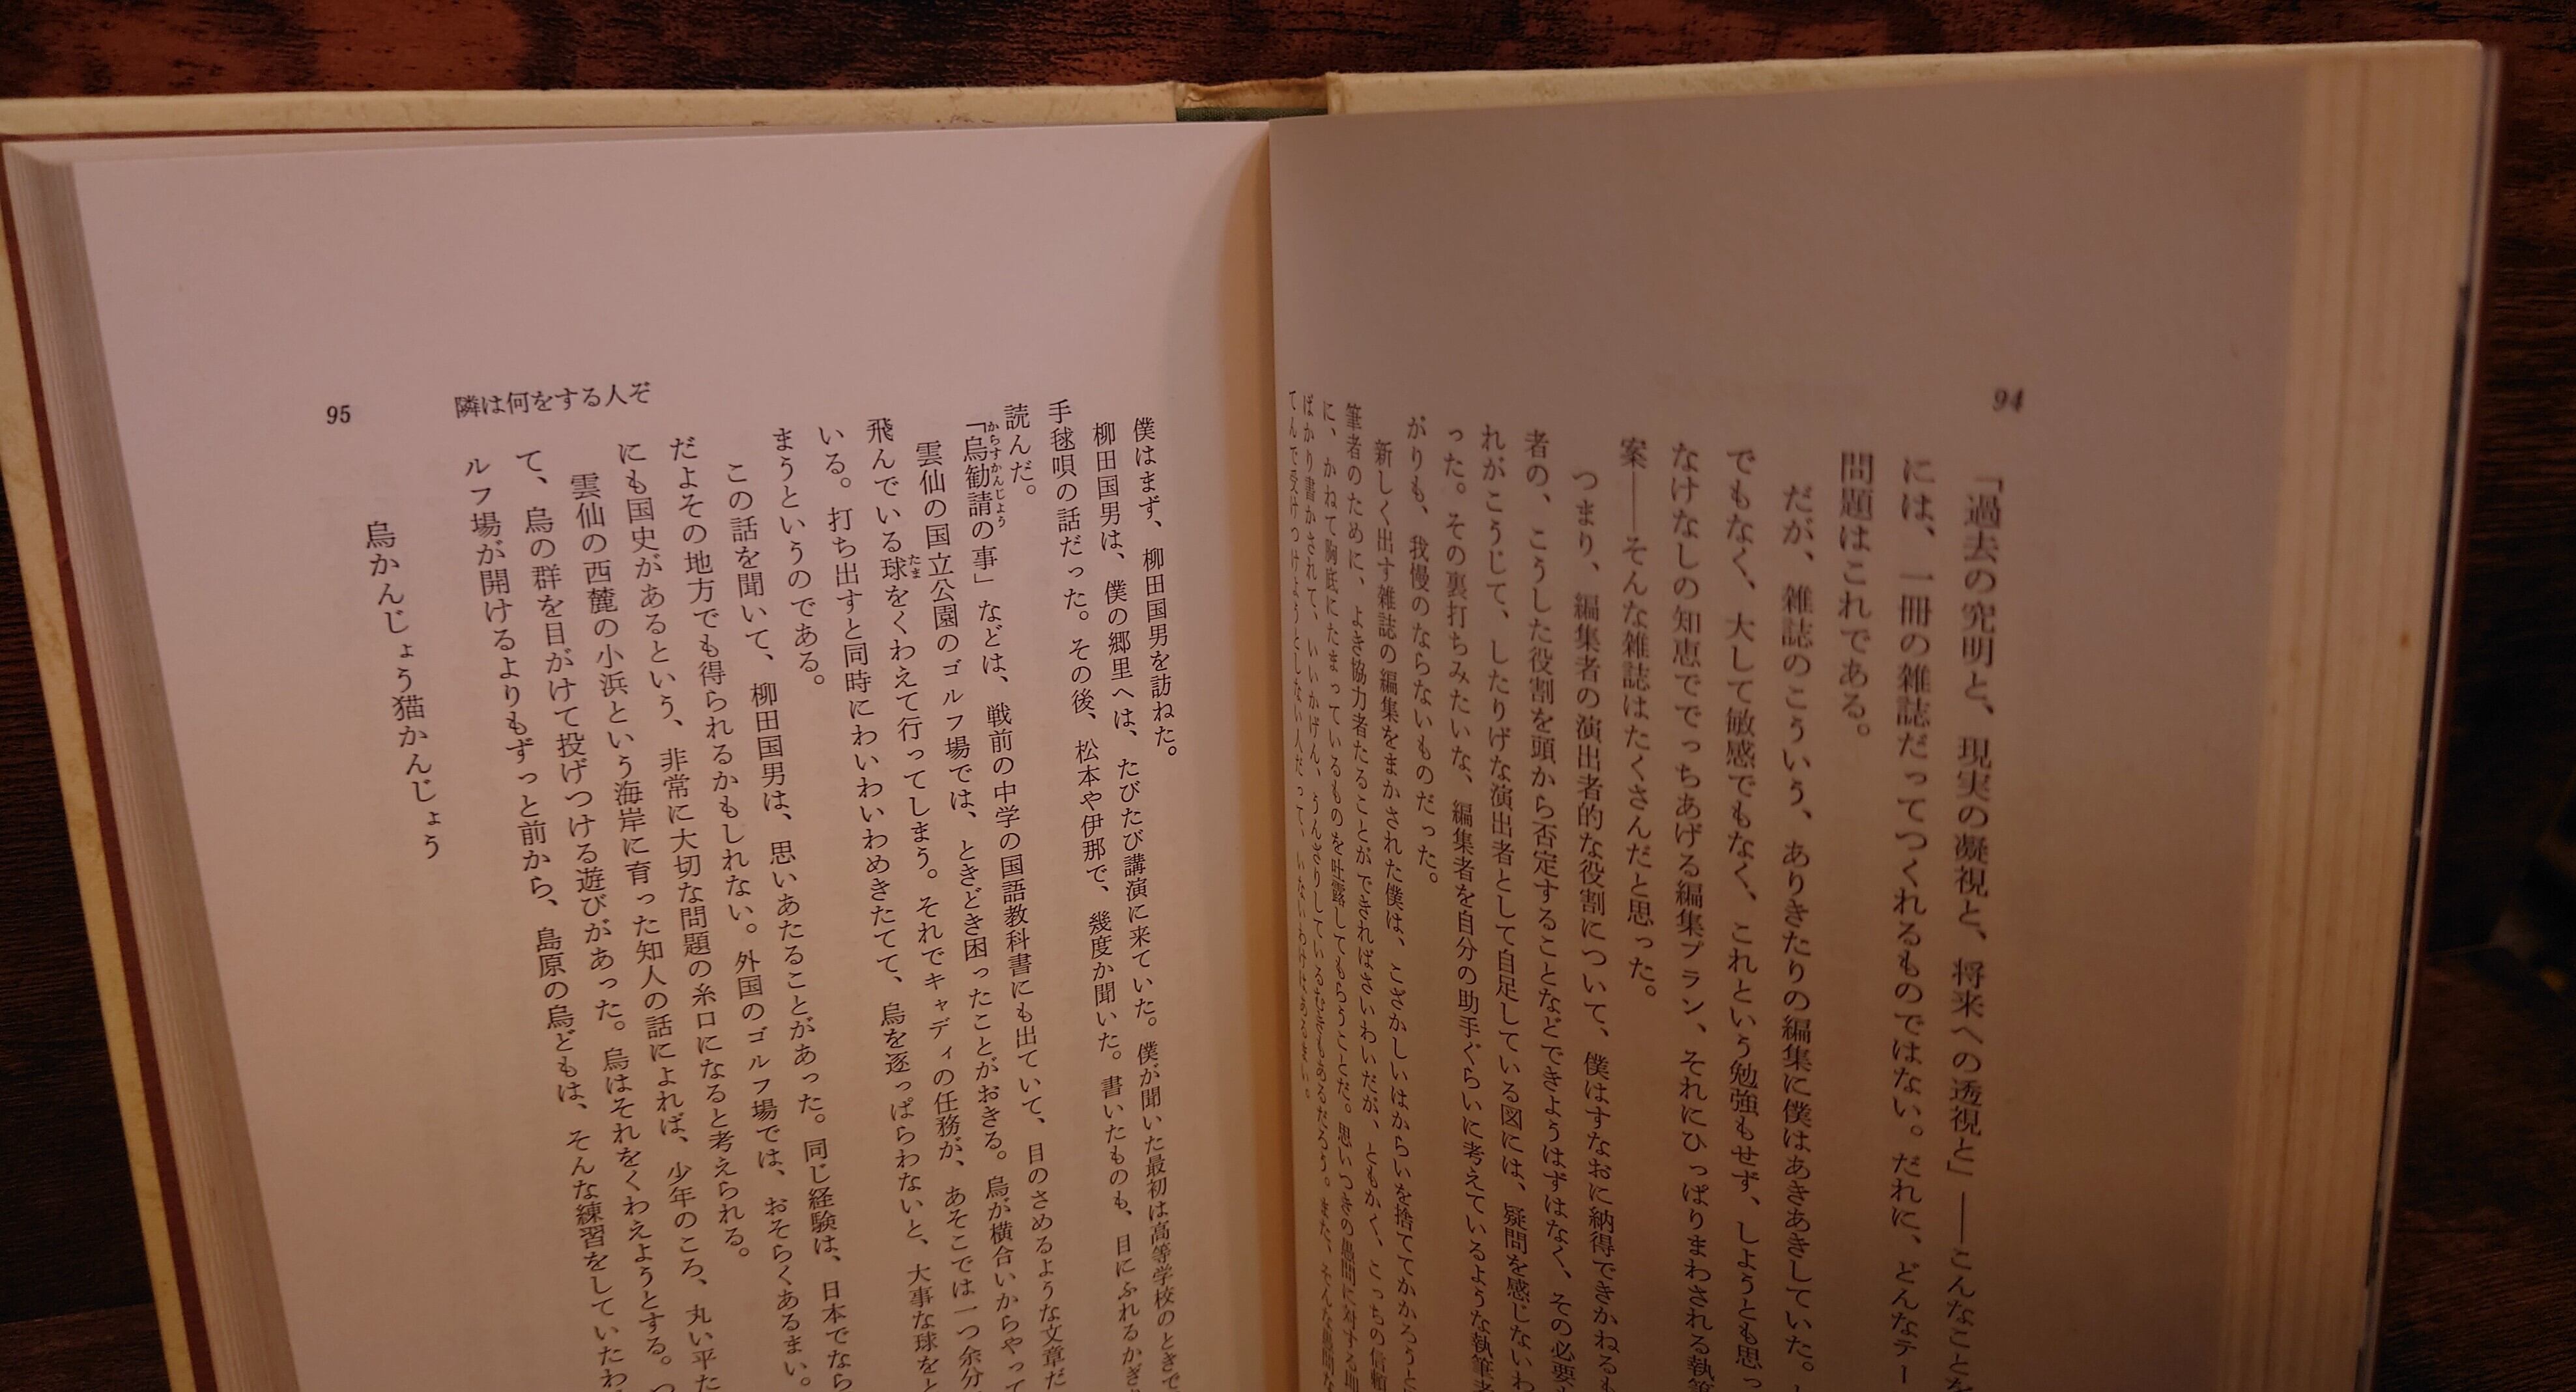 94
「過去の究明と、現実の凝視と、将来への透視と」――こんなことを
には、一冊の雑誌だってつくれるものではない。だれに、どんなテー
問題はこれである。
だが、雑誌のこういう、ありきたりの編集に僕はあきあきしていた。
でもなく、大して敏感でもなく、これという勉強もせず、しようとも思っ
なけなしの知恵ででっちあげる編集プラン、それにひっぱりまわされる執筆
案――そんな雑誌はたくさんだと思った。
つまり、編集者の演出者的な役割について、僕はすなおに納得できかねるも
者の、こうした役割を頭から否定することなどできようはずはなく、その必要も
れがこうじて、したりげな演出者として自足している図には、疑問を感じないわ
った。その裏打ちみたいな、編集者を自分の助手ぐらいに考えているような執筆者
がりも、我慢のならないものだった。
新しく出す雑誌の編集をまかされた僕は、こざかしいはからいを捨ててかかろうと
筆者のために、よき協力者たることができればさいわいだが、ともかく、こっちの信頼
に、かねて胸底にたまっているものを吐露してもらうことだ。思いつきの愚問に対する即
ばかり書かされて、いいかげん、うんざりしているむきもあるだろう。また、そんな愚問な
てんで受けつけようとしない人だって、
95
隣は何をする人ぞ
僕はまず、柳田国男を訪ねた。
柳田国男は、僕の郷里へは、たびたび講演に来ていた。僕が聞いた最初は高等学校のときで
手毬唄の話だった。その後、松本や伊那で、幾度か聞いた。書いたものも、目にふれるかぎ
読んだ。
「烏勧請の事」などは、戦前の中学の国語教科書にも出ていて、目のさめるような文章だ
からすかんじょう
雲仙の国立公園のゴルフ場では、ときどき困ったことがおきる。烏が横合いからやって
飛んでいる球をくわえて行ってしまう。それでキャディの任務が、あそこでは一つ余分
たま
いる。打ち出すと同時にわいわいわめきたてて、烏を逐っぱらわないと、大事な球をと
まうというのである。
この話を聞いて、柳田国男は、思いあたることがあった。同じ経験は、日本でなら
だよその地方でも得られるかもしれない。外国のゴルフ場では、おそらくあるまい。
にも国史があるという、非常に大切な問題の糸口になると考えられる。
雲仙の西麓の小浜という海岸に育った知人の話によれば、少年のころ、丸い平た
て、烏の群を目がけて投げつける遊びがあった。烏はそれをくわえようとする。つ
ルフ場が開けるよりもずっと前から、島原の烏どもは、そんな練習をしていたわ
烏かんじょう猫かんじょう